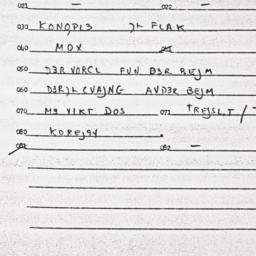 021 — 022 —
030 KONQPI3 )L FLAK
040 MOX
050 D3R VORCL FUN D3R BEJM
060 D3R)L CVAJNG AVD3R BEJM
070 M9 VIKT DOS 071 TREJSL,T /
080 KOREJ9Y
081 082 —